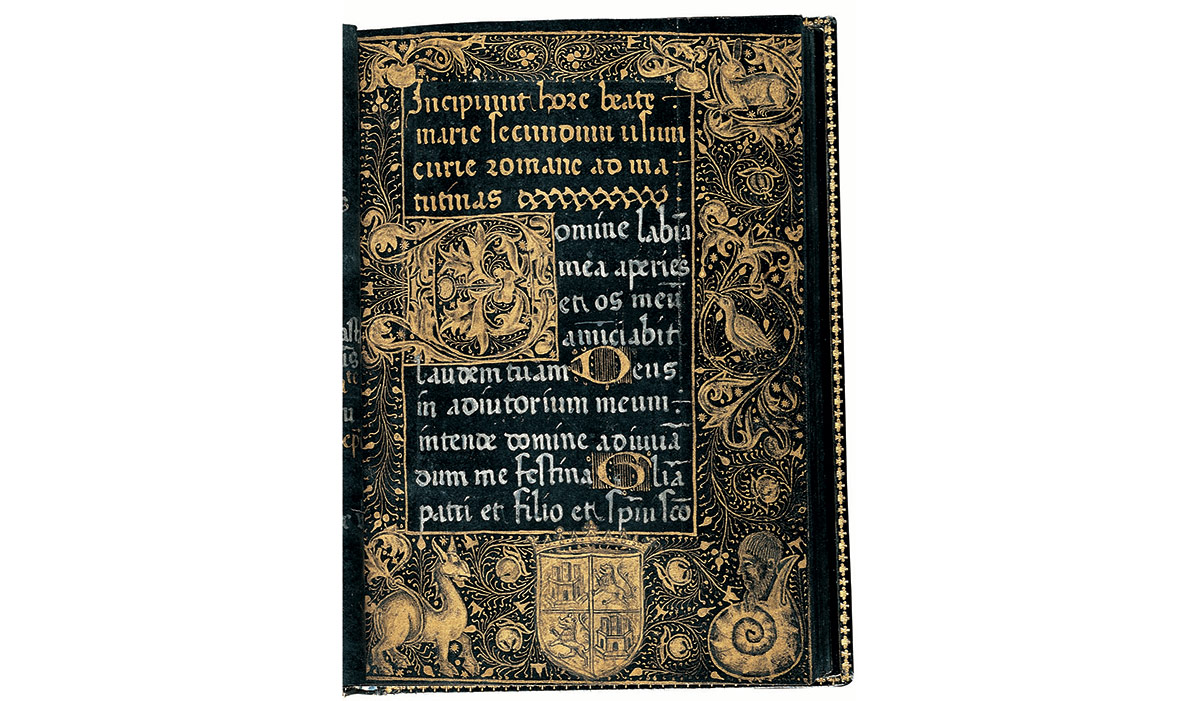 Incipiunt hore beate
marie secundum usum
curie romane ad ma
tutinas
Domine labia
mea aperies
et os meū
anuciabit
laudem tuam Deus
in adiutorium meum
intende domine adiuuā
dum me festina Gliā
patri et filio et spiu sco